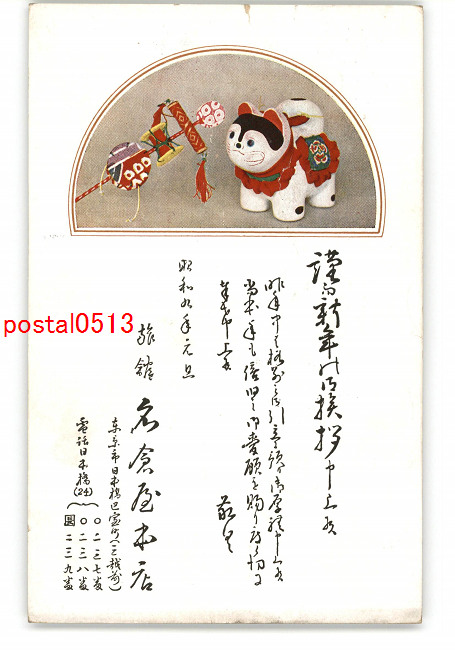 謹而新年の御挨拶申上候
昨年中は格別之御引立を頂き御厚礼申上候
本年も倍旧之御愛顧を賜り度
申上候
敬具
昭和九年元旦
旅館 名倉屋本店
東京市日本橋区室町(三越前)
電話日本橋(24)
〇二三七番
〇二三八番
二三九番
postal0513